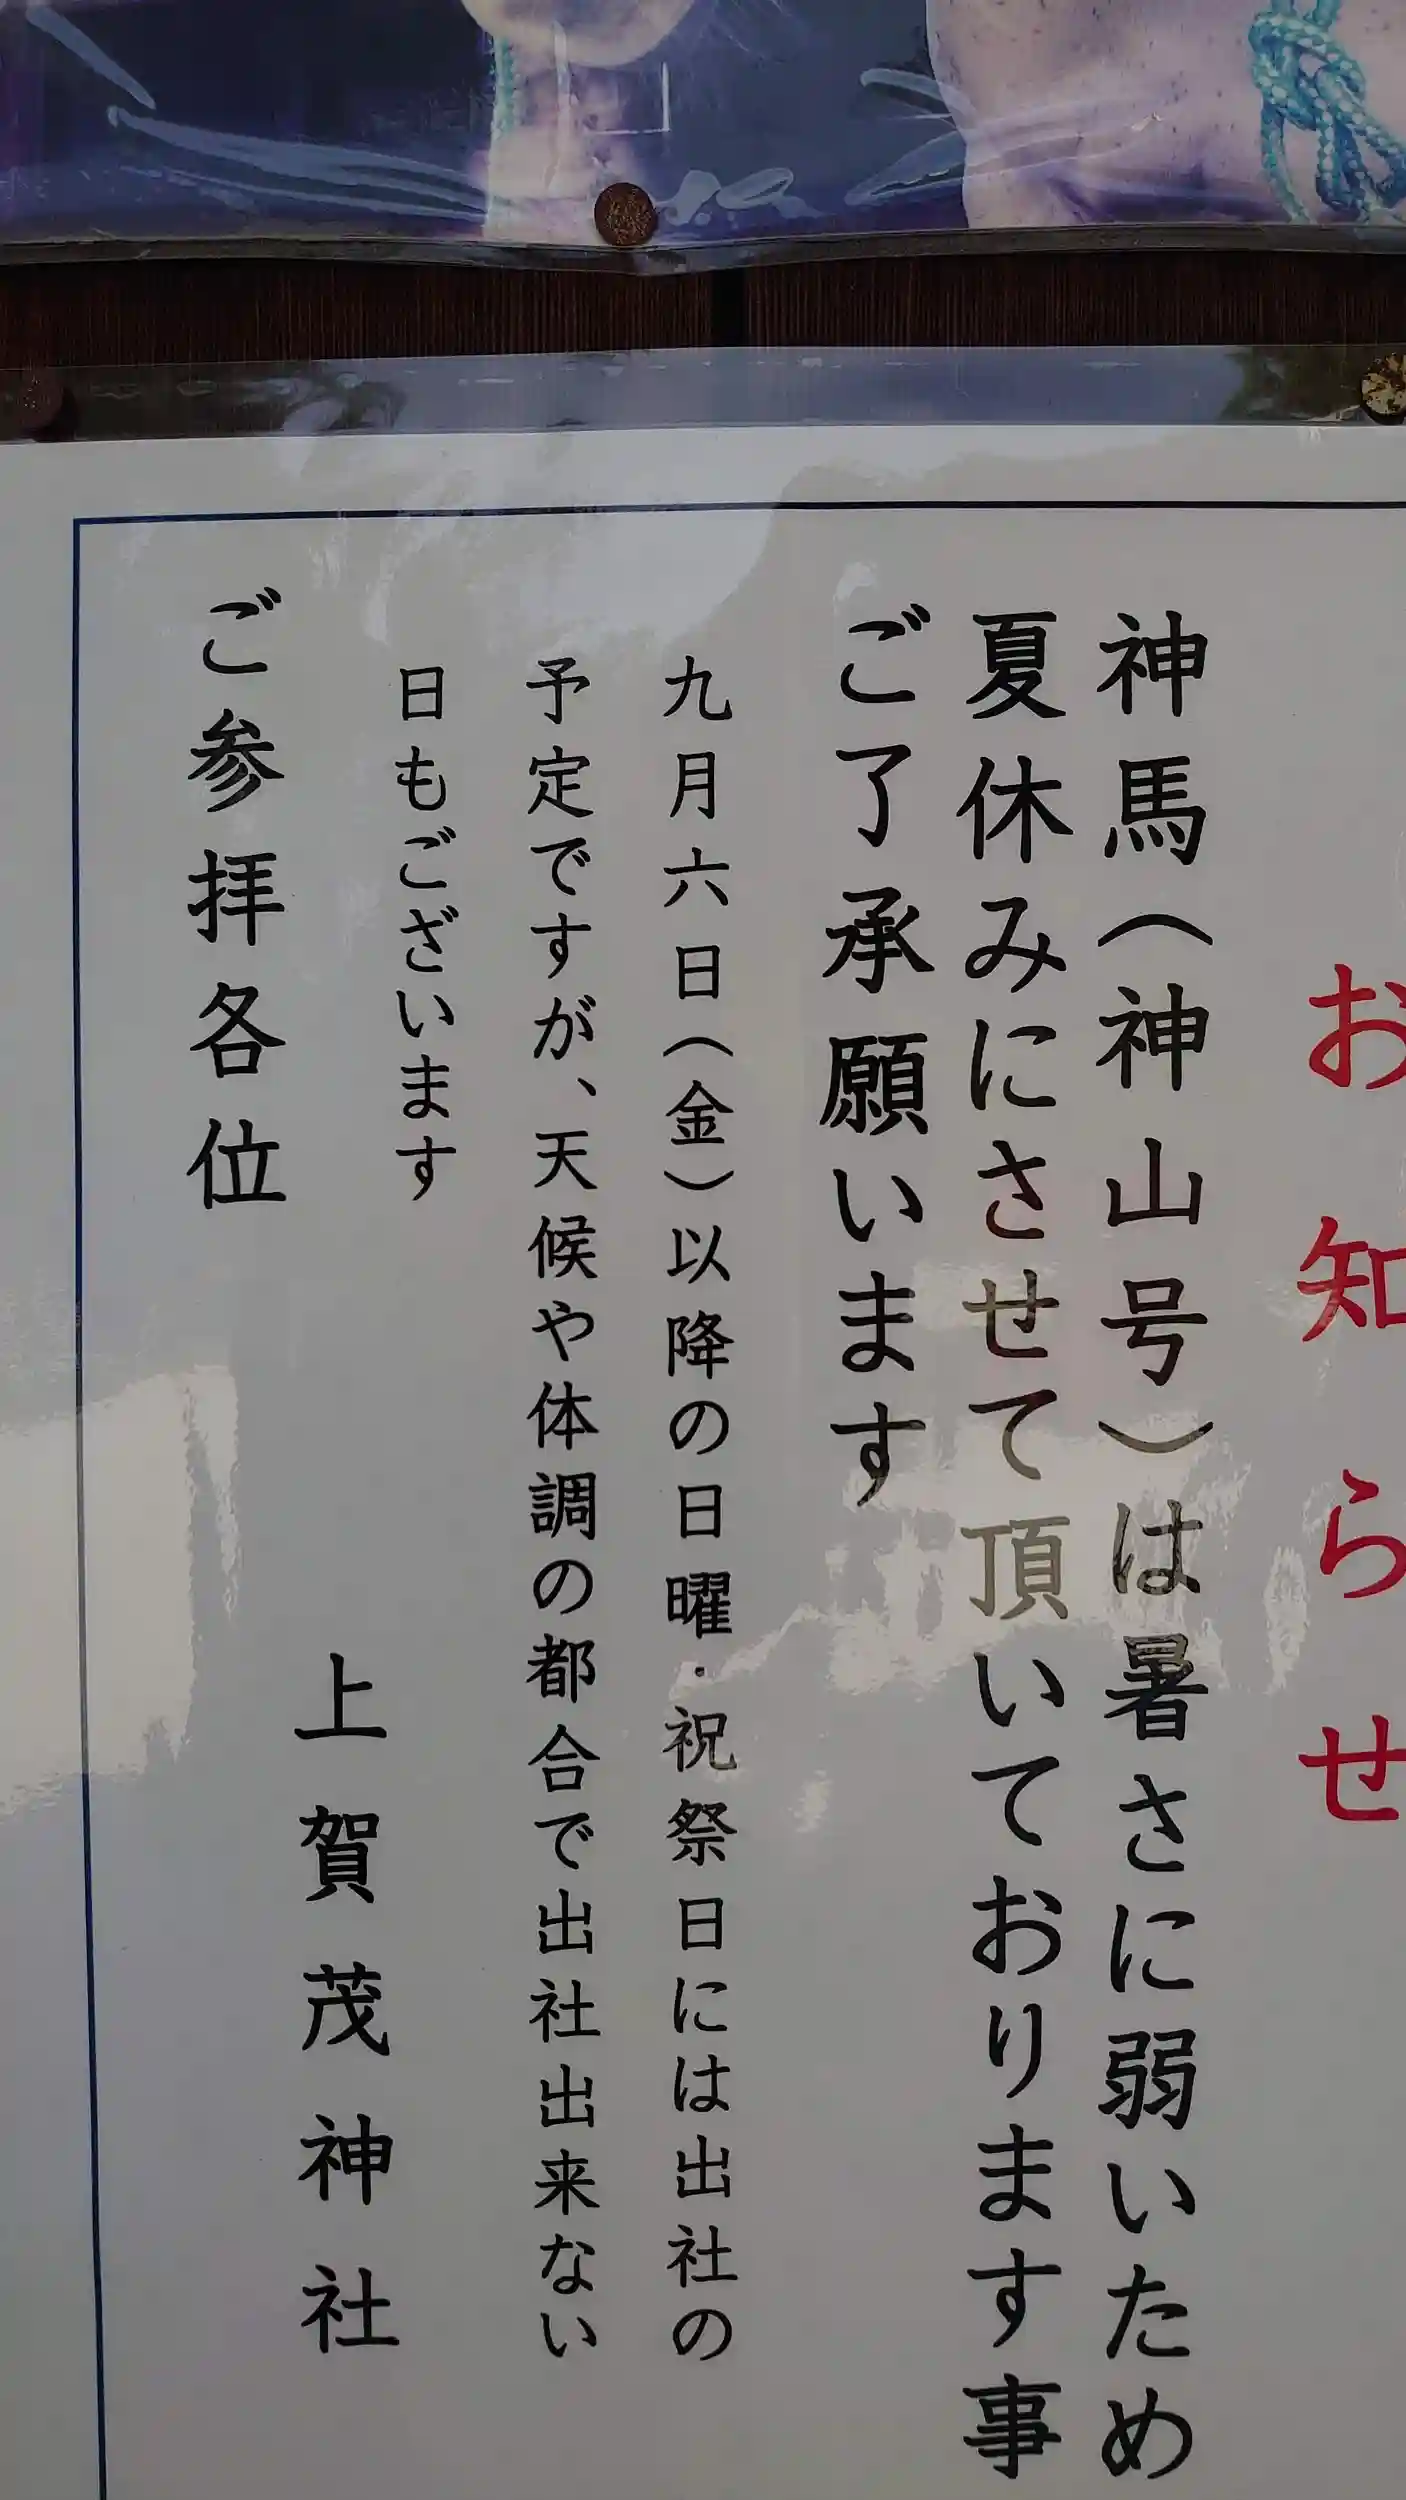 お知らせ
神馬（神山号）は暑さに弱いため
夏休みにさせて頂いております事
ご了承願います
九月六日（金）以降の日曜・祝祭日には出社の
予定ですが、天候や体調の都合で出社出来ない
日もございます
上賀茂神社
ご参拝各位